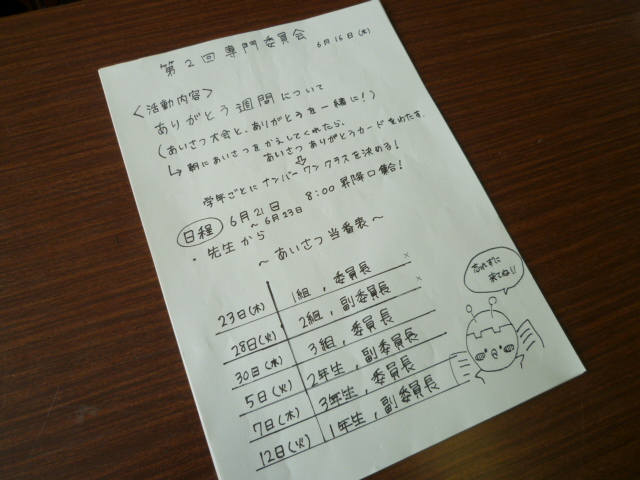 第2回専門委員会
6月16日(木)
<活動内容>
ありがとう週間について
(あいさつ大会と、ありがとうを一緒に!)
↳朝にあいさつをかえしてくれたら、
あいさつ ありがとうカードをわたす.
⇩
学年ごとにナンバーワンクラスを決める!
日程 6月21日 8:00 昇降口集合!
~6月23日
・先生から
~あいさつ当番表~
23日(木) 1組,委員長 ×
28日(火) 2組,副委員長 ×
30日(木) 3組,委員長
5日(火) 2年生,副委員長
7日(木) 3年生,委員長
12日(火) 1年生,副委員長
忘れずに
来てね!!